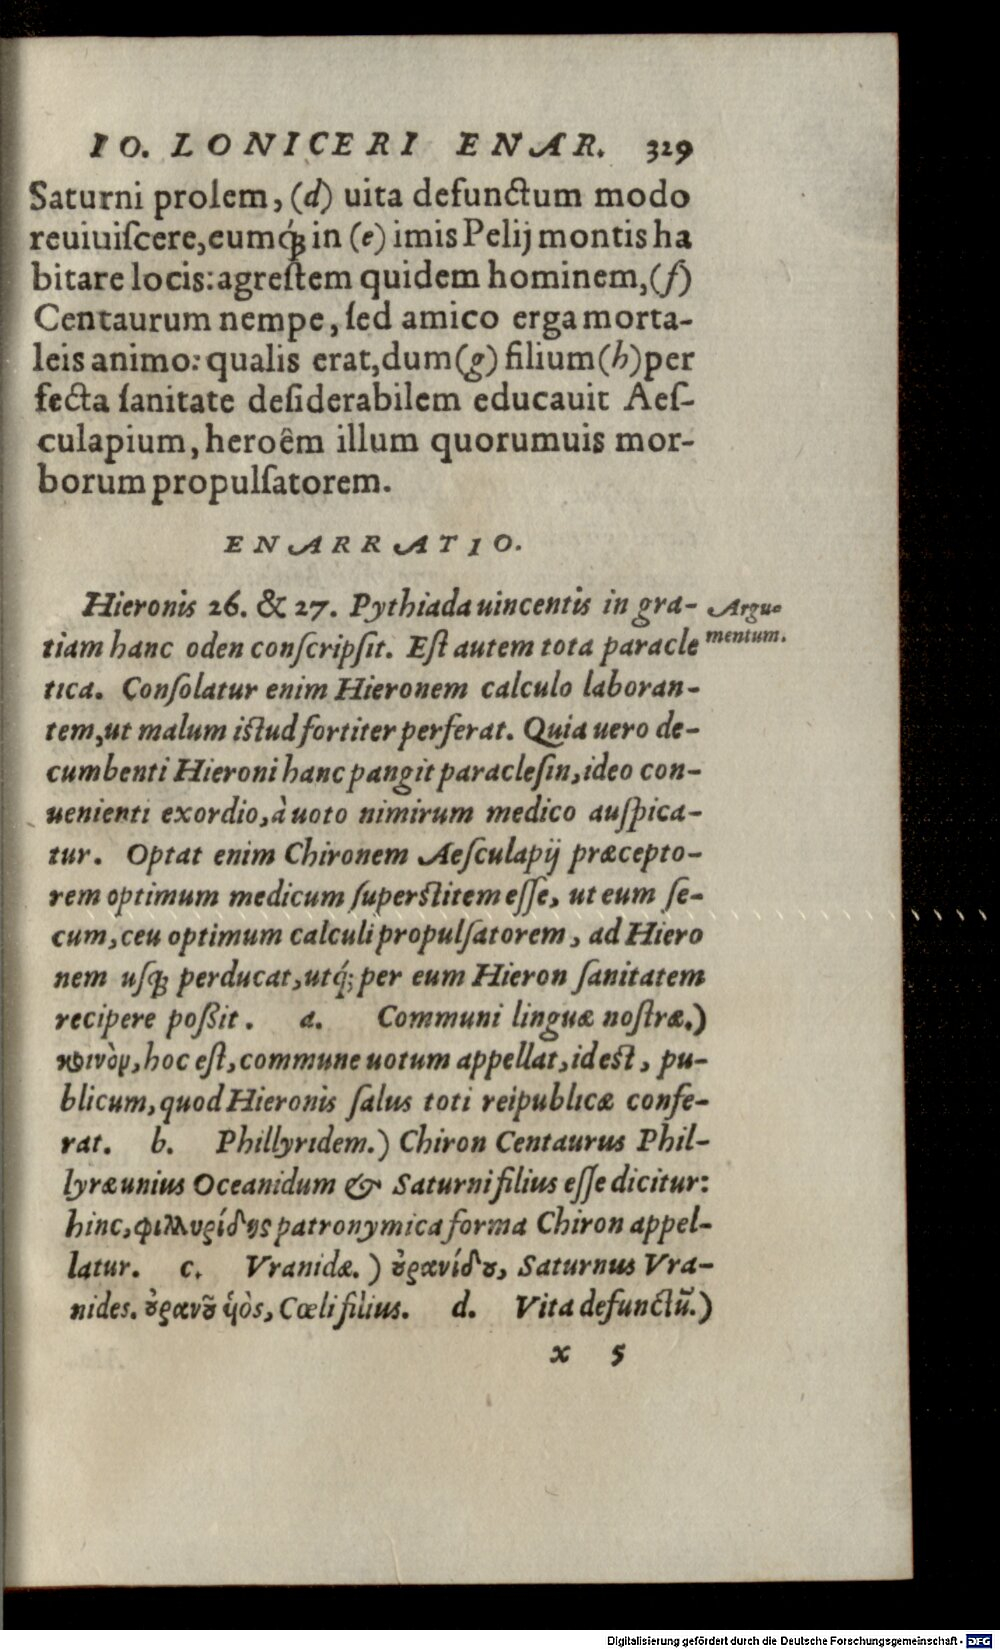 IO. LONICERI ENAR. 329
Saturni prolem, (d) uita defunctum modo
reuiuiſcere, eumq́ꝫ in (e) imis Pelij montis ha
bitare locis: agreſtem quidem hominem, (f)
Centaurum nempe, ſed amico erga morta-
leis animo: qualis erat, dum (g) filium (h) per
fecta ſanitate deſiderabilem educauit Aeſ-
culapium, heroêm illum quorumuis mor-
borum propulſatorem.
ENARRATIO.
Hieronis 26. & 27. Pythiada uincentis in gra-
Argu-
mentum.
tiam hanc oden conſcripſit. Eſt autem tota paracle
tica. Conſolatur enim Hieronem calculo laboran-
tem, ut malum iſtud fortiter perferat. Quia uero de-
cumbenti Hieroni hanc pangit paracleſin, ideo con-
uenienti exordio, à uoto nimirum medico auſpica-
tur. Optat enim Chironem Aeſculapij præcepto-
rem optimum medicum ſuperſtitem eſſe, ut eum ſe-
cum, ceu optimum calculi propulſatorem, ad Hiero
nem uſqꝫ perducat, utq́ꝫ per eum Hieron ſanitatem
recipere poßit. a. Communi linguæ noſtræ.)
κοινὸν, hoc eſt, commune uotum appellat, id eſt, pu-
blicum, quod Hieronis ſalus toti reipublicæ confe-
rat. b. Phillyridem.) Chiron Centaurus Phil-
lyræ unius Oceanidum & Saturni filius eſſe dicitur:
hinc, φιλλυρίδης patronymica forma Chiron appel-
latur. c. Vranidæ.) ȣ̓ρανίδȣ, Saturnus Vra-
nides. ȣ̓ρανȣ͂ ὑὸς, Cœli filius. d. Vita defunctũ.)
x 5
Digitalisierung gefördert durch die Deutsche Forschungsgemeinschaft - DFG